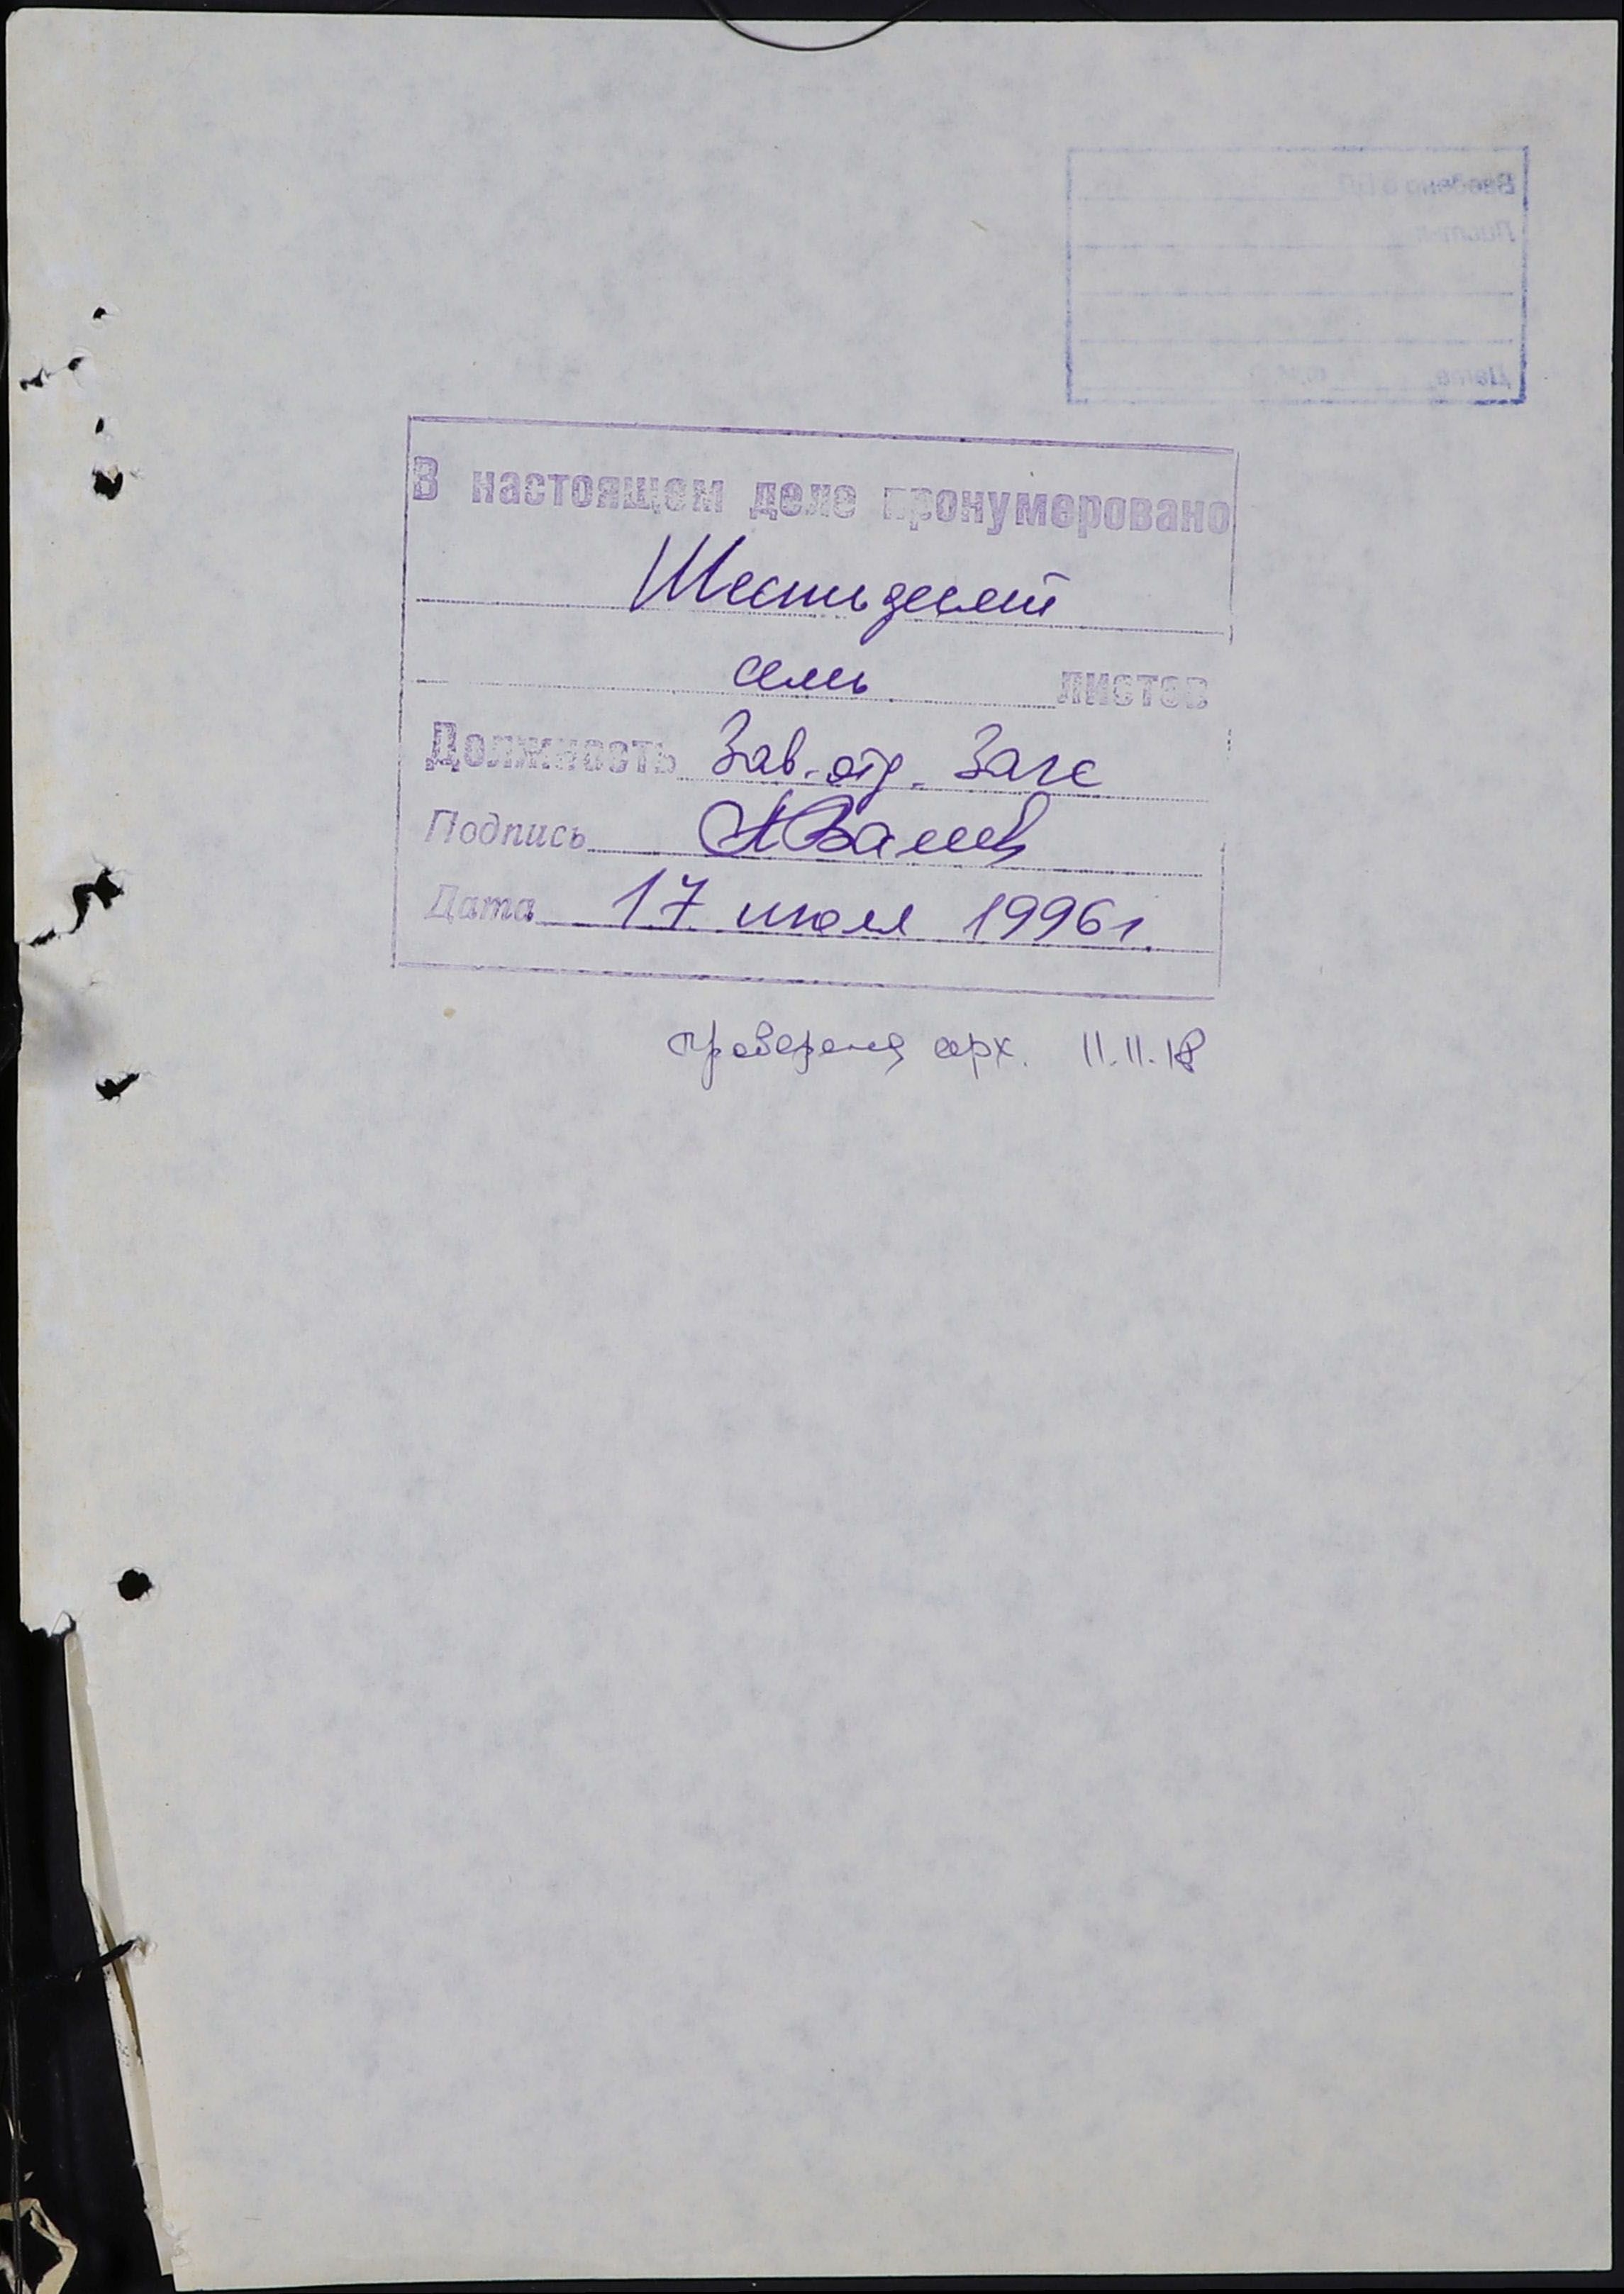 Введено в БД
Дата
В настоящем деле пронумеровано
Шестьдесят
семь листов
Должность Зав. отд. Загс
Подпись
Дата 17 июля 1996 г.
проверена арх. 11.11.18